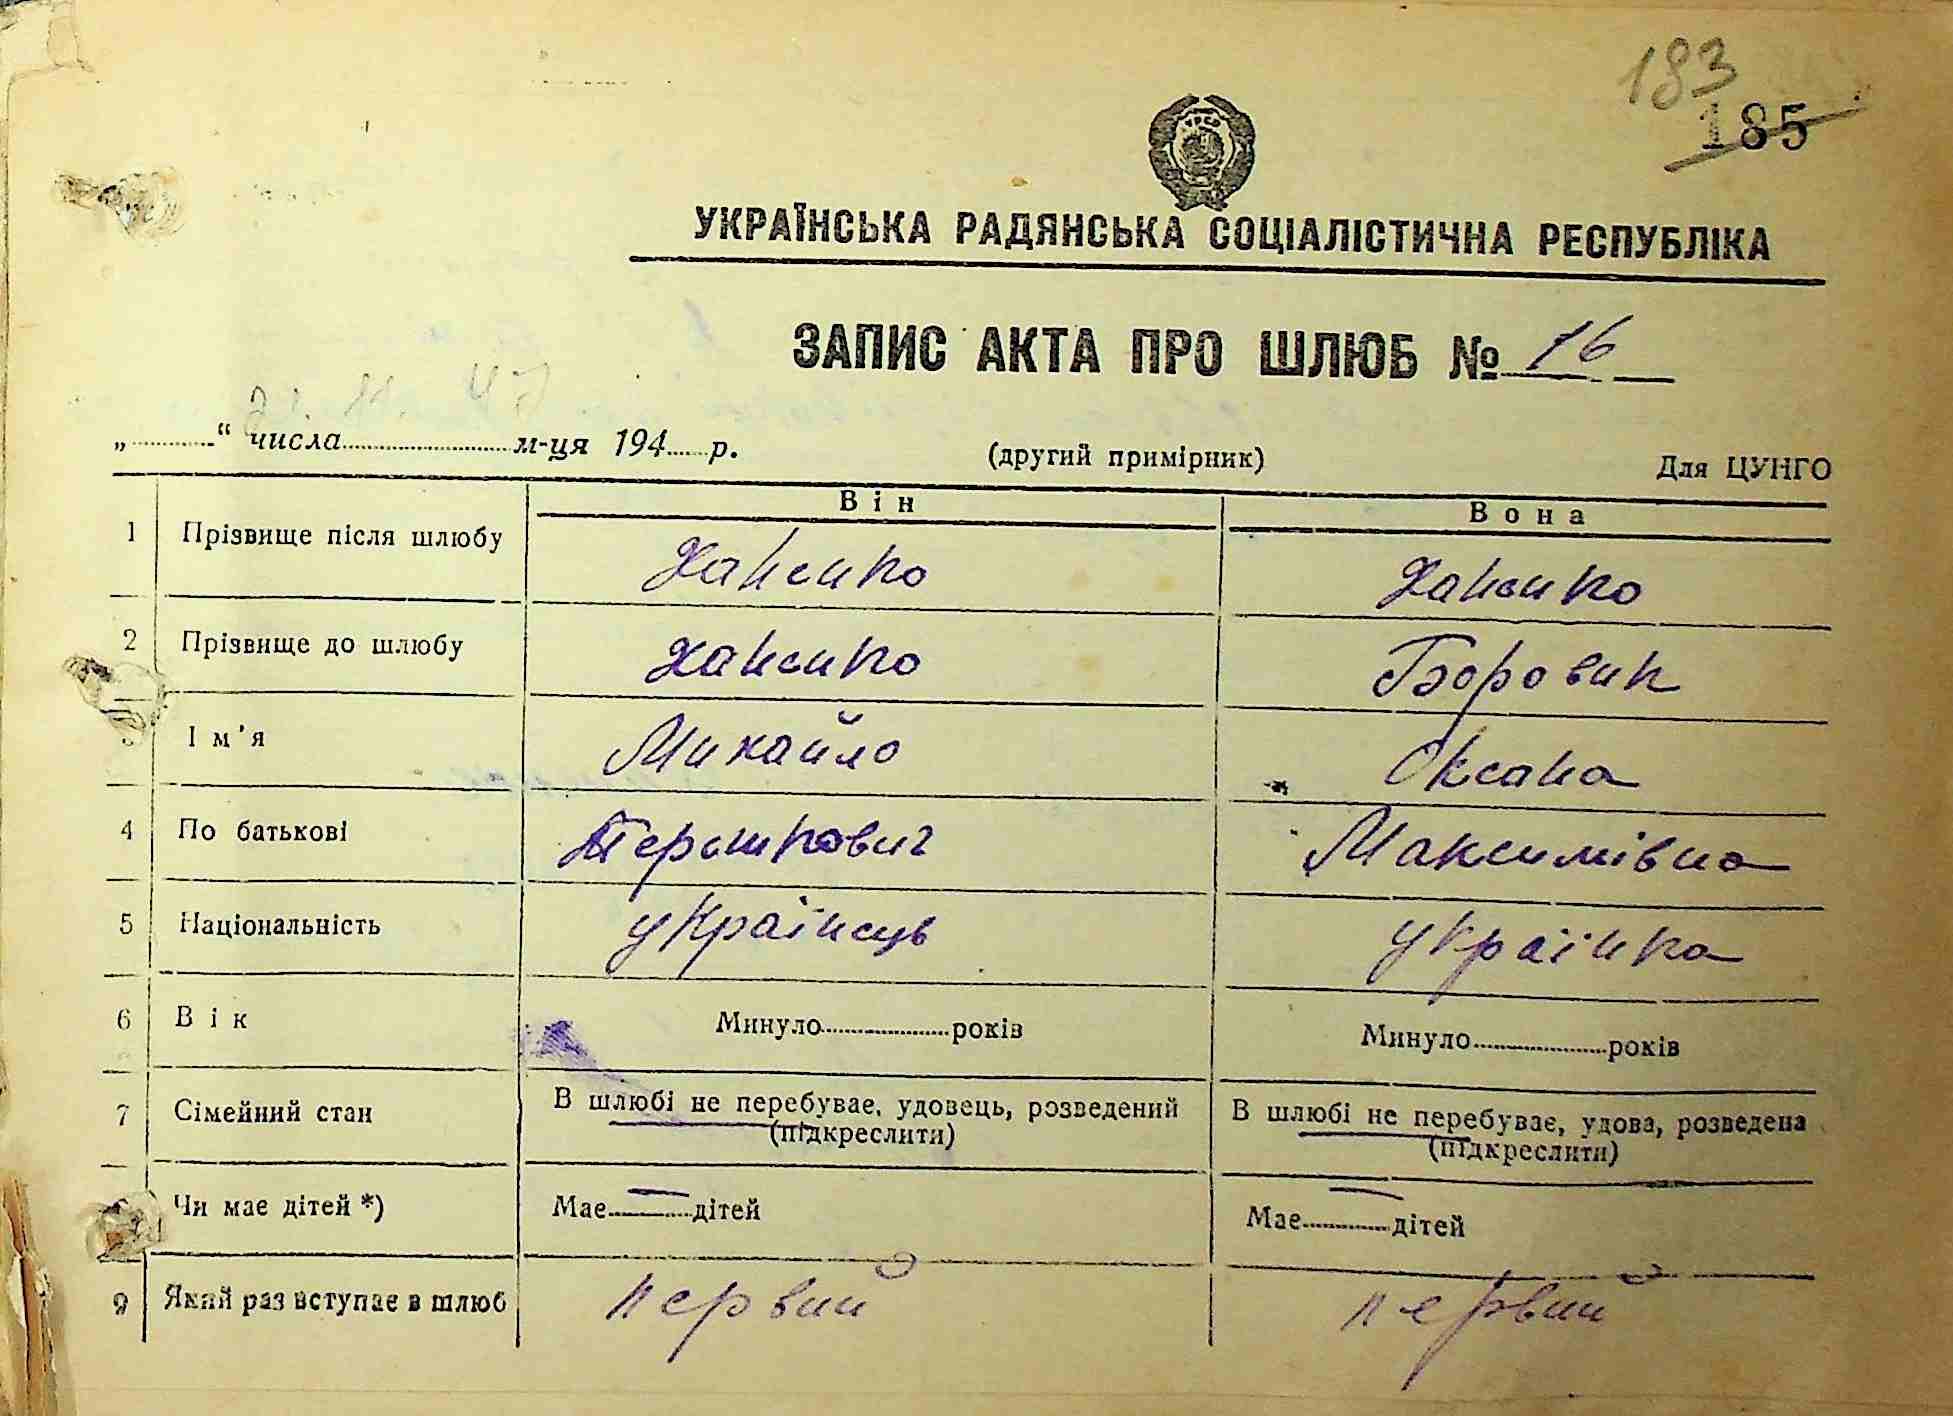 183
185
УКРАЇНСЬКА РАДЯНСЬКА СОЦІАЛІСТИЧНА РЕСПУБЛІКА
ЗАПИС АКТА ПРО ШЛЮБ № 16
„ “ числа м-ця 194 р. (другий примірник) Для ЦУНГО
Він Вона
1 Прізвище після шлюбу Ханенко Ханенко
2 Прізвище до шлюбу Ханенко Боровик
3 Ім'я Михайло Оксана
4 По батькові Максимівна
5 Національність українець українка
6 Вік Минуло років Минуло років
7 Сімейний стан В шлюбі не перебуває, удовець, розведений В шлюбі не перебуває, удова, розведена
(підкреслити) (підкреслити)
Чи має дітей *) Має — дітей Має — дітей
9 Який раз вступає в шлюб первий первий